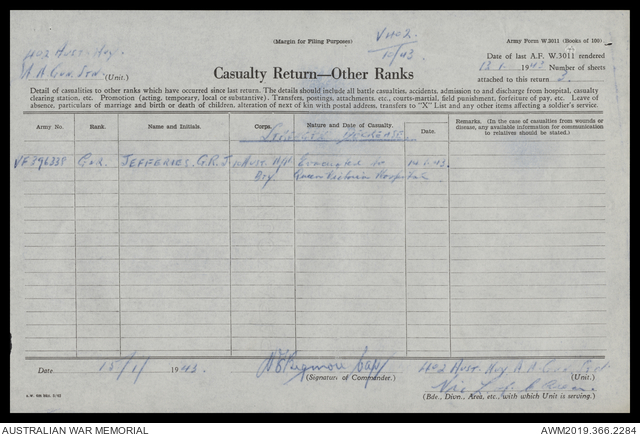 (Margin for Filing Purposes)
V402
10/43
Army Form W.3011 (Books of 100)
402 Aust. Hvy.
A A Gun Stn. (Unit.)
Date of last A.F. W.3011 rendered
1943 Number of sheets
attached to this return
Casualty Return—Other Ranks
Detail of casualties to other ranks which have occurred since last return. The details should include all battle casualties, accidents, admission to and discharge from hospital, casualty
clearing station, etc. Promotion (acting, temporary, local or substantive). Transfers, postings, attachments, etc., courts-martial, field punishment, forfeiture of pay, etc. Leave of
absence, particulars of marriage and birth or death of children, alteration of next of kin with postal address, transfers to "X" List and any other items affecting a soldier's service.
Army No.
Rank.
Name and Initials.
Corps.
Nature and Date of Casualty.
Date.
Remarks. (In the case of casualties from wounds or
disease, any available information for communication
to relatives should be stated.)
STRENGTH DECREASE.
VF396338 Gnr. JEFFERIES. G.R.J. Aust. Evacuated to 14.1.43.
Bty. Queen Victoria Hospital
Date 15/1 1943.
Capt
(Signature of Commander.)
402 Aust. Hvy A A Gun Stn.
(Unit.)
(Bde., Divn., Area, etc., with which Unit is serving.)
AUSTRALIAN WAR MEMORIAL
AWM2019.366.2284